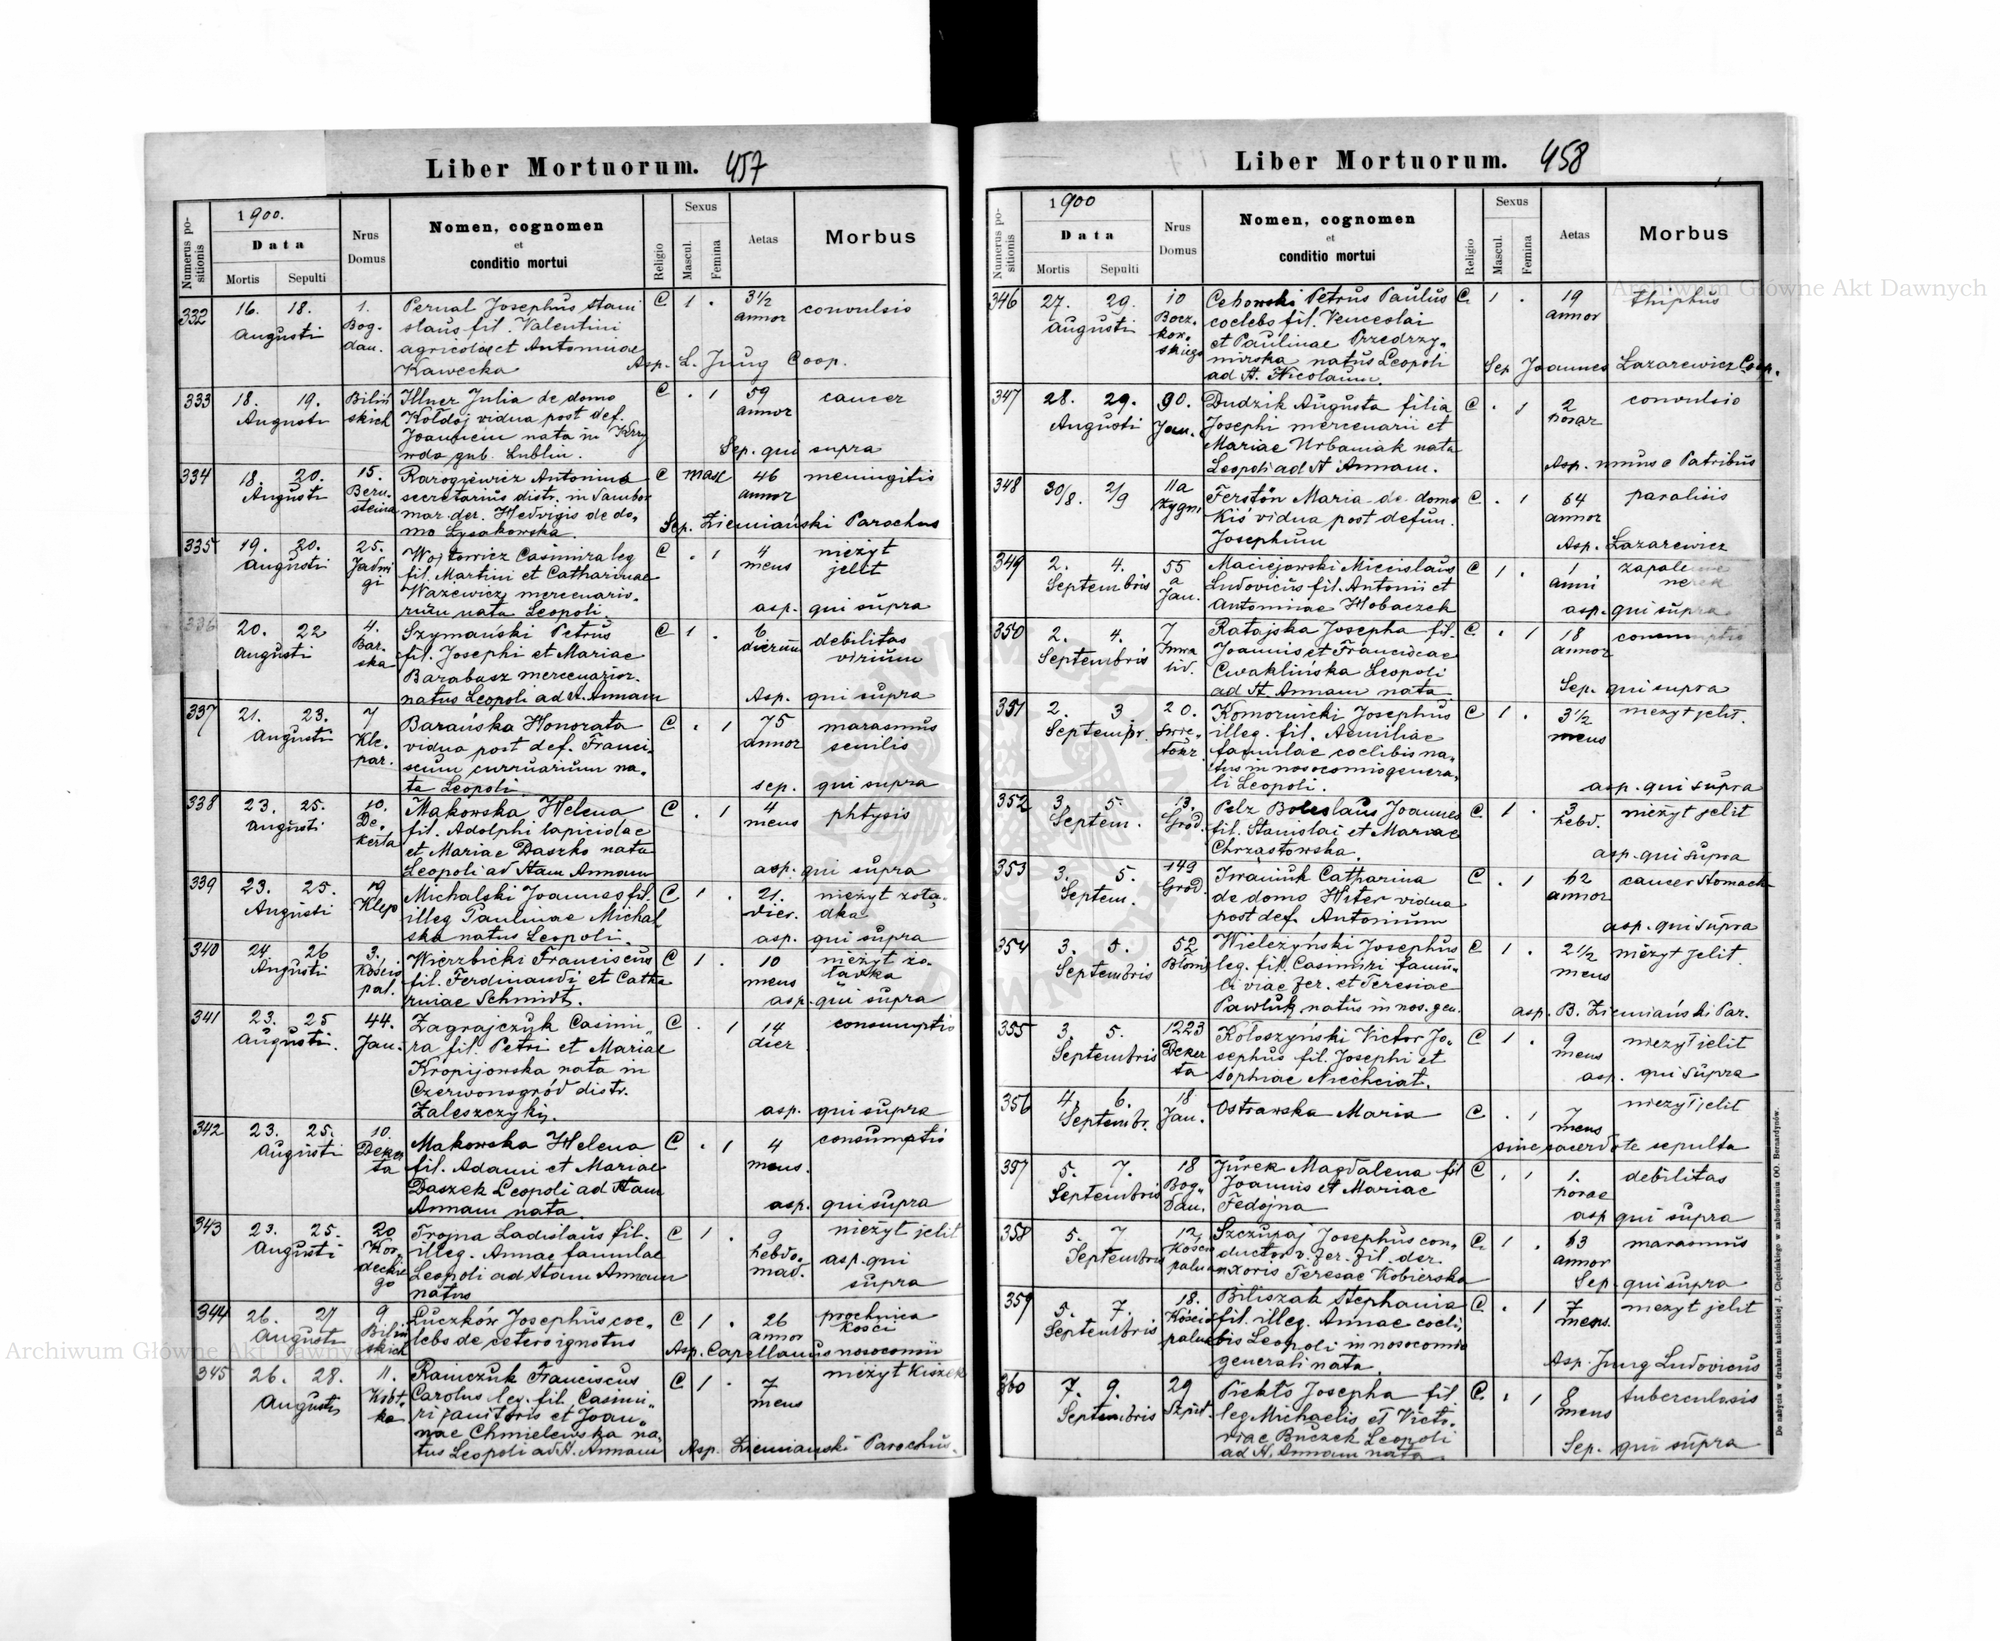 Liber Mortuorum. 457
Numerus positionis
1900.
Data
Mortis Sepulti
Nrus Domus
Nomen, cognomen
et
conditio mortui
Religio
Sexus
Mascul. Femina
Aetas
Morbus
332 16. 18. Augusti 1. Bogdan.
Pernal Josephus Stani
slaus fil. Valentini
agricolae et Antoninae
Kawecka
C 1 . 3 1/2 annor convulsio
Asp. L. Jung Coop.
333 18. 19. Augusti Biliń
skich
Illner Julia de domo
Kołdoj vidua post def.
Joannem nata in Krzy
wda gub. Lublin.
C . 1 59 annor cancer
Sep. qui supra
334 18. 20. Augusti 15. Bern
steina
Rarogiewicz Antonius
secretarius distr. in Sambor
mar. der. Hedvigis de do-
mo Łysakowska.
C masc 46 annor meningitis
Sep. Ziemiański Parochus
335 19. 20. Augusti 25. Jadwi
gi
Wojtowicz Casimira leg
fil. Martini et Catharinae
Wazewicz mercenario-
rum nata Leopoli.
C . 1 4 mens nieżyt
jelit
asp. qui supra
336 20. 22 Augusti 4. Bar-
ska
Szymański Petrus
fil. Josephi et Mariae
Barabasz mercenarior.
natus Leopoli ad S. Annam
C 1 . 6 dierum debilitas
virium
Asp. qui supra
337 21. 23. Augusti 7 Kle-
par.
Barańska Honorata
vidua post def. Franci-
scum curruarium na-
ta Leopoli
C . 1 75 annor marasmus
senilis
sep. qui supra
338 23. 25. Augusti 10. De-
kerta
Makowska Helena
fil. Adolphi lapicidae
et Mariae Daszko nata
Leopoli ad Stam Annam
C . 1 4 mens phtysis
asp. qui supra
339 23. 25. Augusti 19 Klep
Michalski Joannes fil.
illeg Paulinae Michal
ska natus Leopoli.
C 1 . 21. dier. nieżyt żołą-
dka
asp. qui supra
340 24 26 Augusti 3. Kościo
pal.
Wierzbicki Franciscus
fil. Ferdinandi et Catha
rinae Schmidt.
C 1 . 10 mens nieżyt żo-
łądka
asp. qui supra
341 23. 25 Augusti. 44. Jan.
Zagrajczuk Casimi-
ra fil. Petri et Mariae
Kropijowska nata in
Czerwonogród distr.
Zaleszczyki.
C . 1 14 dier consumptio
asp. qui supra
342 23. 25. Augusti 10. Deker
ta
Makowska Helena
fil. Adami et Mariae
Daszek Leopoli ad Stam
Annam nata.
C . 1 4 mens. consumptio
asp. qui supra
343 23. 25. Augusti 20 Kor-
deckie
go
Trojna Ladislaus fil.
illeg. Annae famulae
Leopoli ad Stam Annam
natus
C 1 . 9 hebdo-
mad. nieżyt jelit
asp. qui
supra
344 26. 27 Augusti 9 Biliń
skich
Łuczków Josephus coe-
lebs de cetero ignotus
C 1 . 26 annor prochnica
kości
Asp. Capellanus nosocomii
345 26. 28. Augusti 11. Kobt-
ka
Rainczuk Franciscus
Carolus leg. fil. Casimi-
ri janitoris et Joan-
nae Chmielewska na-
tus Leopoli ad S. Annam
C 1 . 7 mens nieżyt kiszek
Asp. Ziemiański Parochus.
Liber Mortuorum. 458
Numerus positionis
1900
Data
Mortis Sepulti
Nrus Domus
Nomen, cognomen
et
conditio mortui
Religio
Sexus
Mascul. Femina
Aetas
Morbus
346 27. 29. Augusti 10
Cehowski Petrus Paulus
coelebs fil. Venceslai
et Paulinae Przedrzy-
mirska natus Leopoli
ad S. Nicolaum.
C. 1 . 19 annor thiphus
Sep Joannes Lazarewicz Coop.
347 28. 29. Augusti 90. Jan.
Dudzik Augusta filia
Josephi mercenarii et
Mariae Urbaniak nata
Leopoli ad S. Annam.
C . 1 2 horar convulsio
Asp. unus e Patribus
348 30/8. 2/9 11a Zygm
Ferstön Maria de domo
Kiś vidua post defun.
Josephum
C . 1 64 annor paralisis
Asp. Lazarewicz
349 2. 4. Septembris 55 a Jan.
Maciejowski Miecislaus
Ludovicus fil. Antonii et
Antoninae Hobaczek
C 1 . 1 anni zapalenie
nerek
asp. qui supra
350 2. 4. Septembris 7 Inwa
lid.
Ratajska Josepha fil.
Joannis et Franciscae
Cwaklińska Leopoli
ad S. Annam nata
C . 1 18 annor consumptio
Sep. qui supra
351 2. 3 Septembr. 20.
Komornicki Josephus
illeg. fil. Aemiliae
famulae coelibis na-
tus in nosocomio genera-
li Leopoli.
C 1 . 3 1/2 mens nieżyt jelit.
asp. qui supra
352 3. 5. Septem. 13. Grod.
Pelz Boleslaus Joannes
fil. Stanislai et Mariae
Chrzastowska.
C 1 . 3 hebd. nieżyt jelit
asp. qui supra
353 3. 5. Septem. 149 Grod.
Iwaniuk Catharina
de domo Hiter vidua
post def. Antonium
C . 1 62 annor cancer stomach
asp. qui supra
354 3. 5. Septembris 52 Błonie
Wieleżyński Josephus
leg. fil. Casimiri famu-
li viae fer. et Teresiae
Pawluk natus in nos. gen.
C 1 . 2 1/2 mens nieżyt jelit.
asp. B. Ziemiański Par.
355 3. 5. Septembris 1223 Deker
ta
Kołoszyński Victor Jo-
sephus fil. Josephi et
Sophiae Niechciat.
C 1 . 9 mens nieżyt jelit
asp. qui supra
356 4. 6. Septembr. 18 Jan.
Ostrawska Maria
C . 1 7 mens nieżyt jelit
sine sacerdote sepulta
357 5. 7. Septembris 18 Bog-
dan.
Jurek Magdalena fil
Joannis et Mariae
Fedojna
C . 1 1. horae debilitas
asp qui supra
358 5. 7 Septembris 12. Kościo
palna
Szczupaj Josephus con-
ductor v. fer. fil. der.
uxoris Teresae Kobierska
C. 1 . 63 annor marasmus
Sep. qui supra
359 5. 7. Septembris 18. Kościo
palna
Biliszak Stephania
fil. illeg. Annae coeli-
bis Leopoli in nosocomio
generali nata
C. . 1 7 mens. nieżyt jelit
Asp. Jung Ludovicus
360 7. 9. Septembris 29 Szpit
Piekło Josepha fil
leg Michaelis et Victo-
riae Buczek Leopoli
ad S. Annam nata
C. . 1 8 mens tuberculosis
Sep. qui supra
Do nabycia w drukarni katolickiej J. Chęcińskiego w zabudowaniu OO. Bernardynów.
Archiwum Główne Akt Dawnych
Archiwum Główne Akt Dawnych